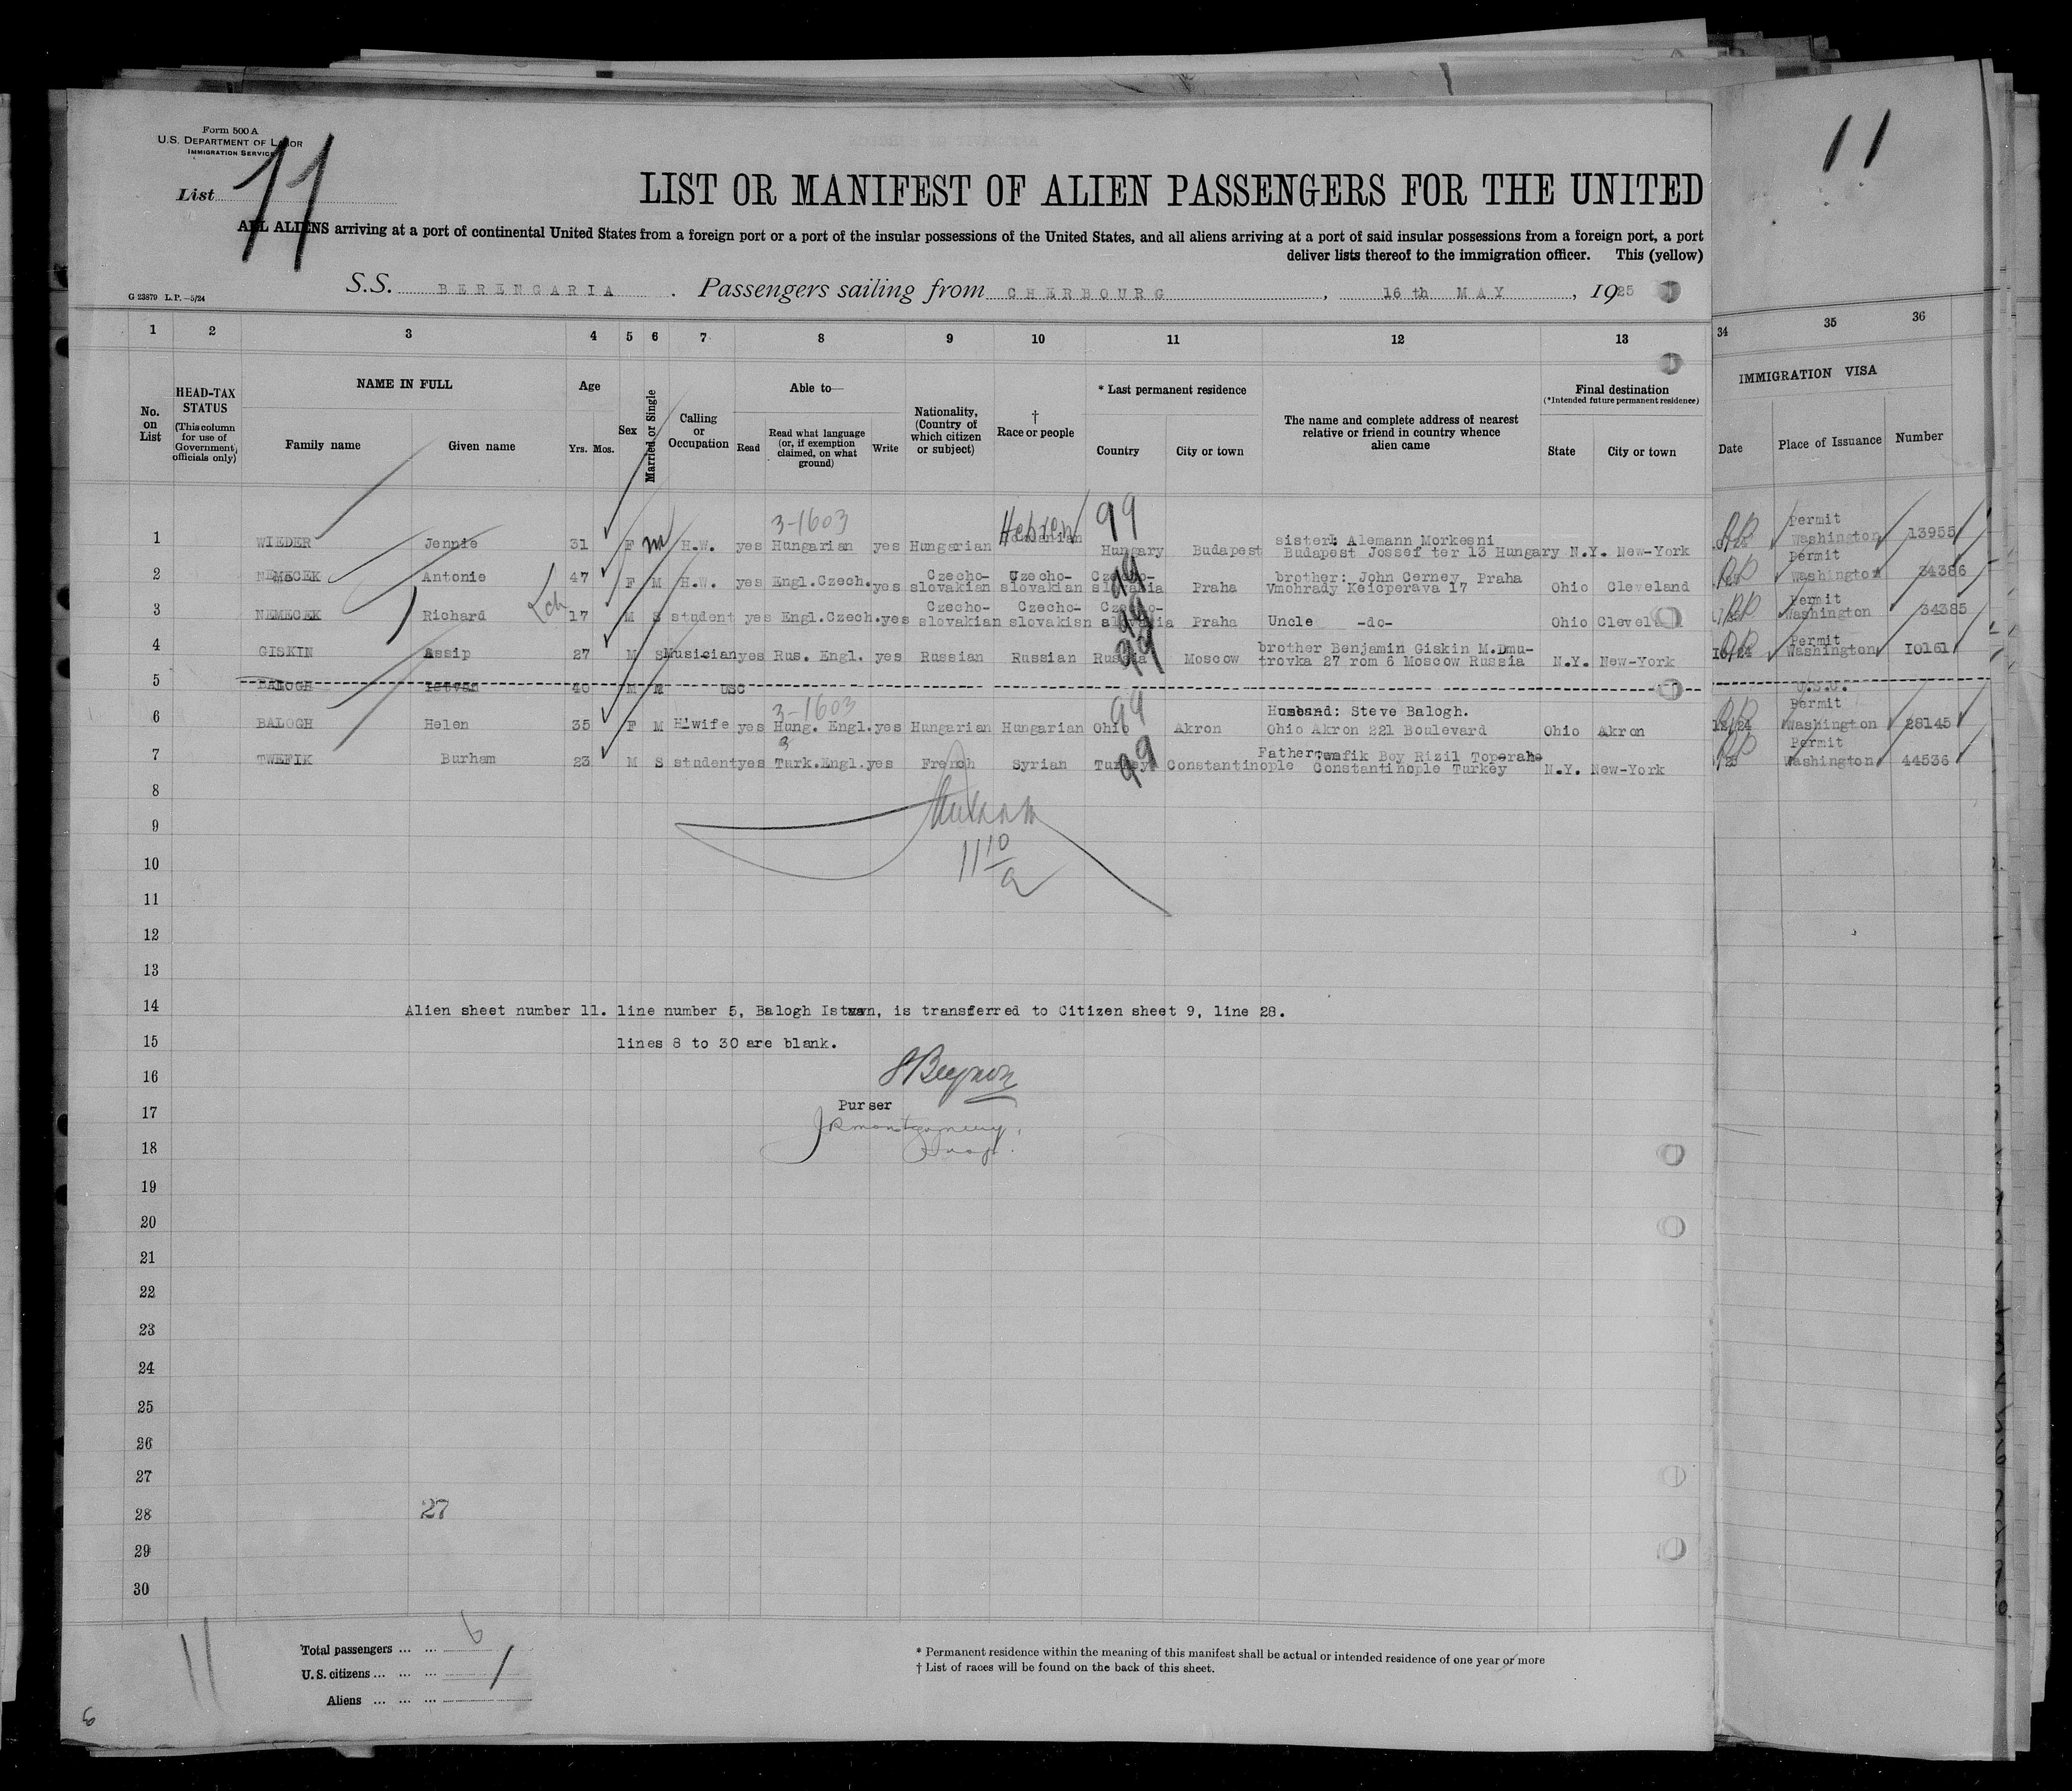 Form 500 A
U.S. DEPARTMENT OF LABOR
IMMIGRATION SERVICE
List 11
11
LIST OR MANIFEST OF ALIEN PASSENGERS FOR THE UNITED
ALL ALIENS arriving at a port of continental United States from a foreign port or a port of the insular possessions of the United States, and all aliens arriving at a port of said insular possessions from a foreign port, a port
deliver lists thereof to the immigration officer. This (yellow)
G 23879 L.P.-5/24
S.S. BERENGARIA. Passengers sailing from CHERBOURG, 16 th MAY, 1925
1 2 3 4 5 6 7 8 9 10 11 12 13 34 35 36
No. on List
HEAD-TAX STATUS (This column for use of Government officials only)
NAME IN FULL
Family name Given name
Age
Yrs. Mos.
Sex
Married or Single
Calling or Occupation
Able to—
Read
Read what language (or, if exemption claimed, on what ground)
Write
Nationality, (Country of which citizen or subject)
† Race or people
* Last permanent residence
Country City or town
The name and complete address of nearest relative or friend in country whence alien came
Final destination
(*Intended future permanent residence)
State City or town
IMMIGRATION VISA
Date Place of Issuance Number
3-1603 Hebrew 99
1 WIEDER Jennie 31 F m H.W. yes Hungarian yes Hungarian Hungary Budapest sister: Alemann Morkesni Budapest Jossef ter 13 Hungary N.Y. New-York Permit Washington 13955
2 NEMECEK Antonie 47 F M H.W. yes Engl.Czech. yes Czecho-slovakian Czecho-slovakian Czecho-slovakia Praha brother: John Cerney Praha Vmohrady Keicperava 17 Ohio Cleveland Permit Washington 34386
3 NEMECEK Richard 17 M S student yes Engl.Czech. yes Czecho-slovakian Czecho-slovakisn Czecho-slovakia Praha Uncle -do- Ohio Cleveland Permit Washington 34385
4 GISKIN Assip 27 M S Musician yes Rus. Engl. yes Russian Russian Russia Moscow brother Benjamin Giskin M.Dmu-trovka 27 rom 6 Moscow Russia N.Y. New-York Permit Washington 10161
5 BALOGH Istvan 40 M M USC U.S.C.
3-1603 99
6 BALOGH Helen 35 F M H'wife yes Hung. Engl. yes Hungarian Hungarian Ohio Akron Husband: Steve Balogh. Ohio Akron 221 Boulevard Ohio Akron 12/24 Permit Washington 28145
7 TWEFIK Burham 23 M S student yes Turk.Engl. yes French Syrian Turkey Constantinople Father: Bey Rizil Constantinople Turkey N.Y. New-York Permit Washington 44536
8
9
10
11
12
13
14 Alien sheet number 11. line number 5, Balogh Istvan, is transferred to Citizen sheet 9, line 28.
15 lines 8 to 30 are blank.
16
Purser
17 JRMontgomery
18
19
20
21
22
23
24
25
26
27
28 27
29
30
11
Total passengers ... ... 6
U.S. citizens ... ... ...
Aliens ... ... ...
* Permanent residence within the meaning of this manifest shall be actual or intended residence of one year or more
† List of races will be found on the back of this sheet.